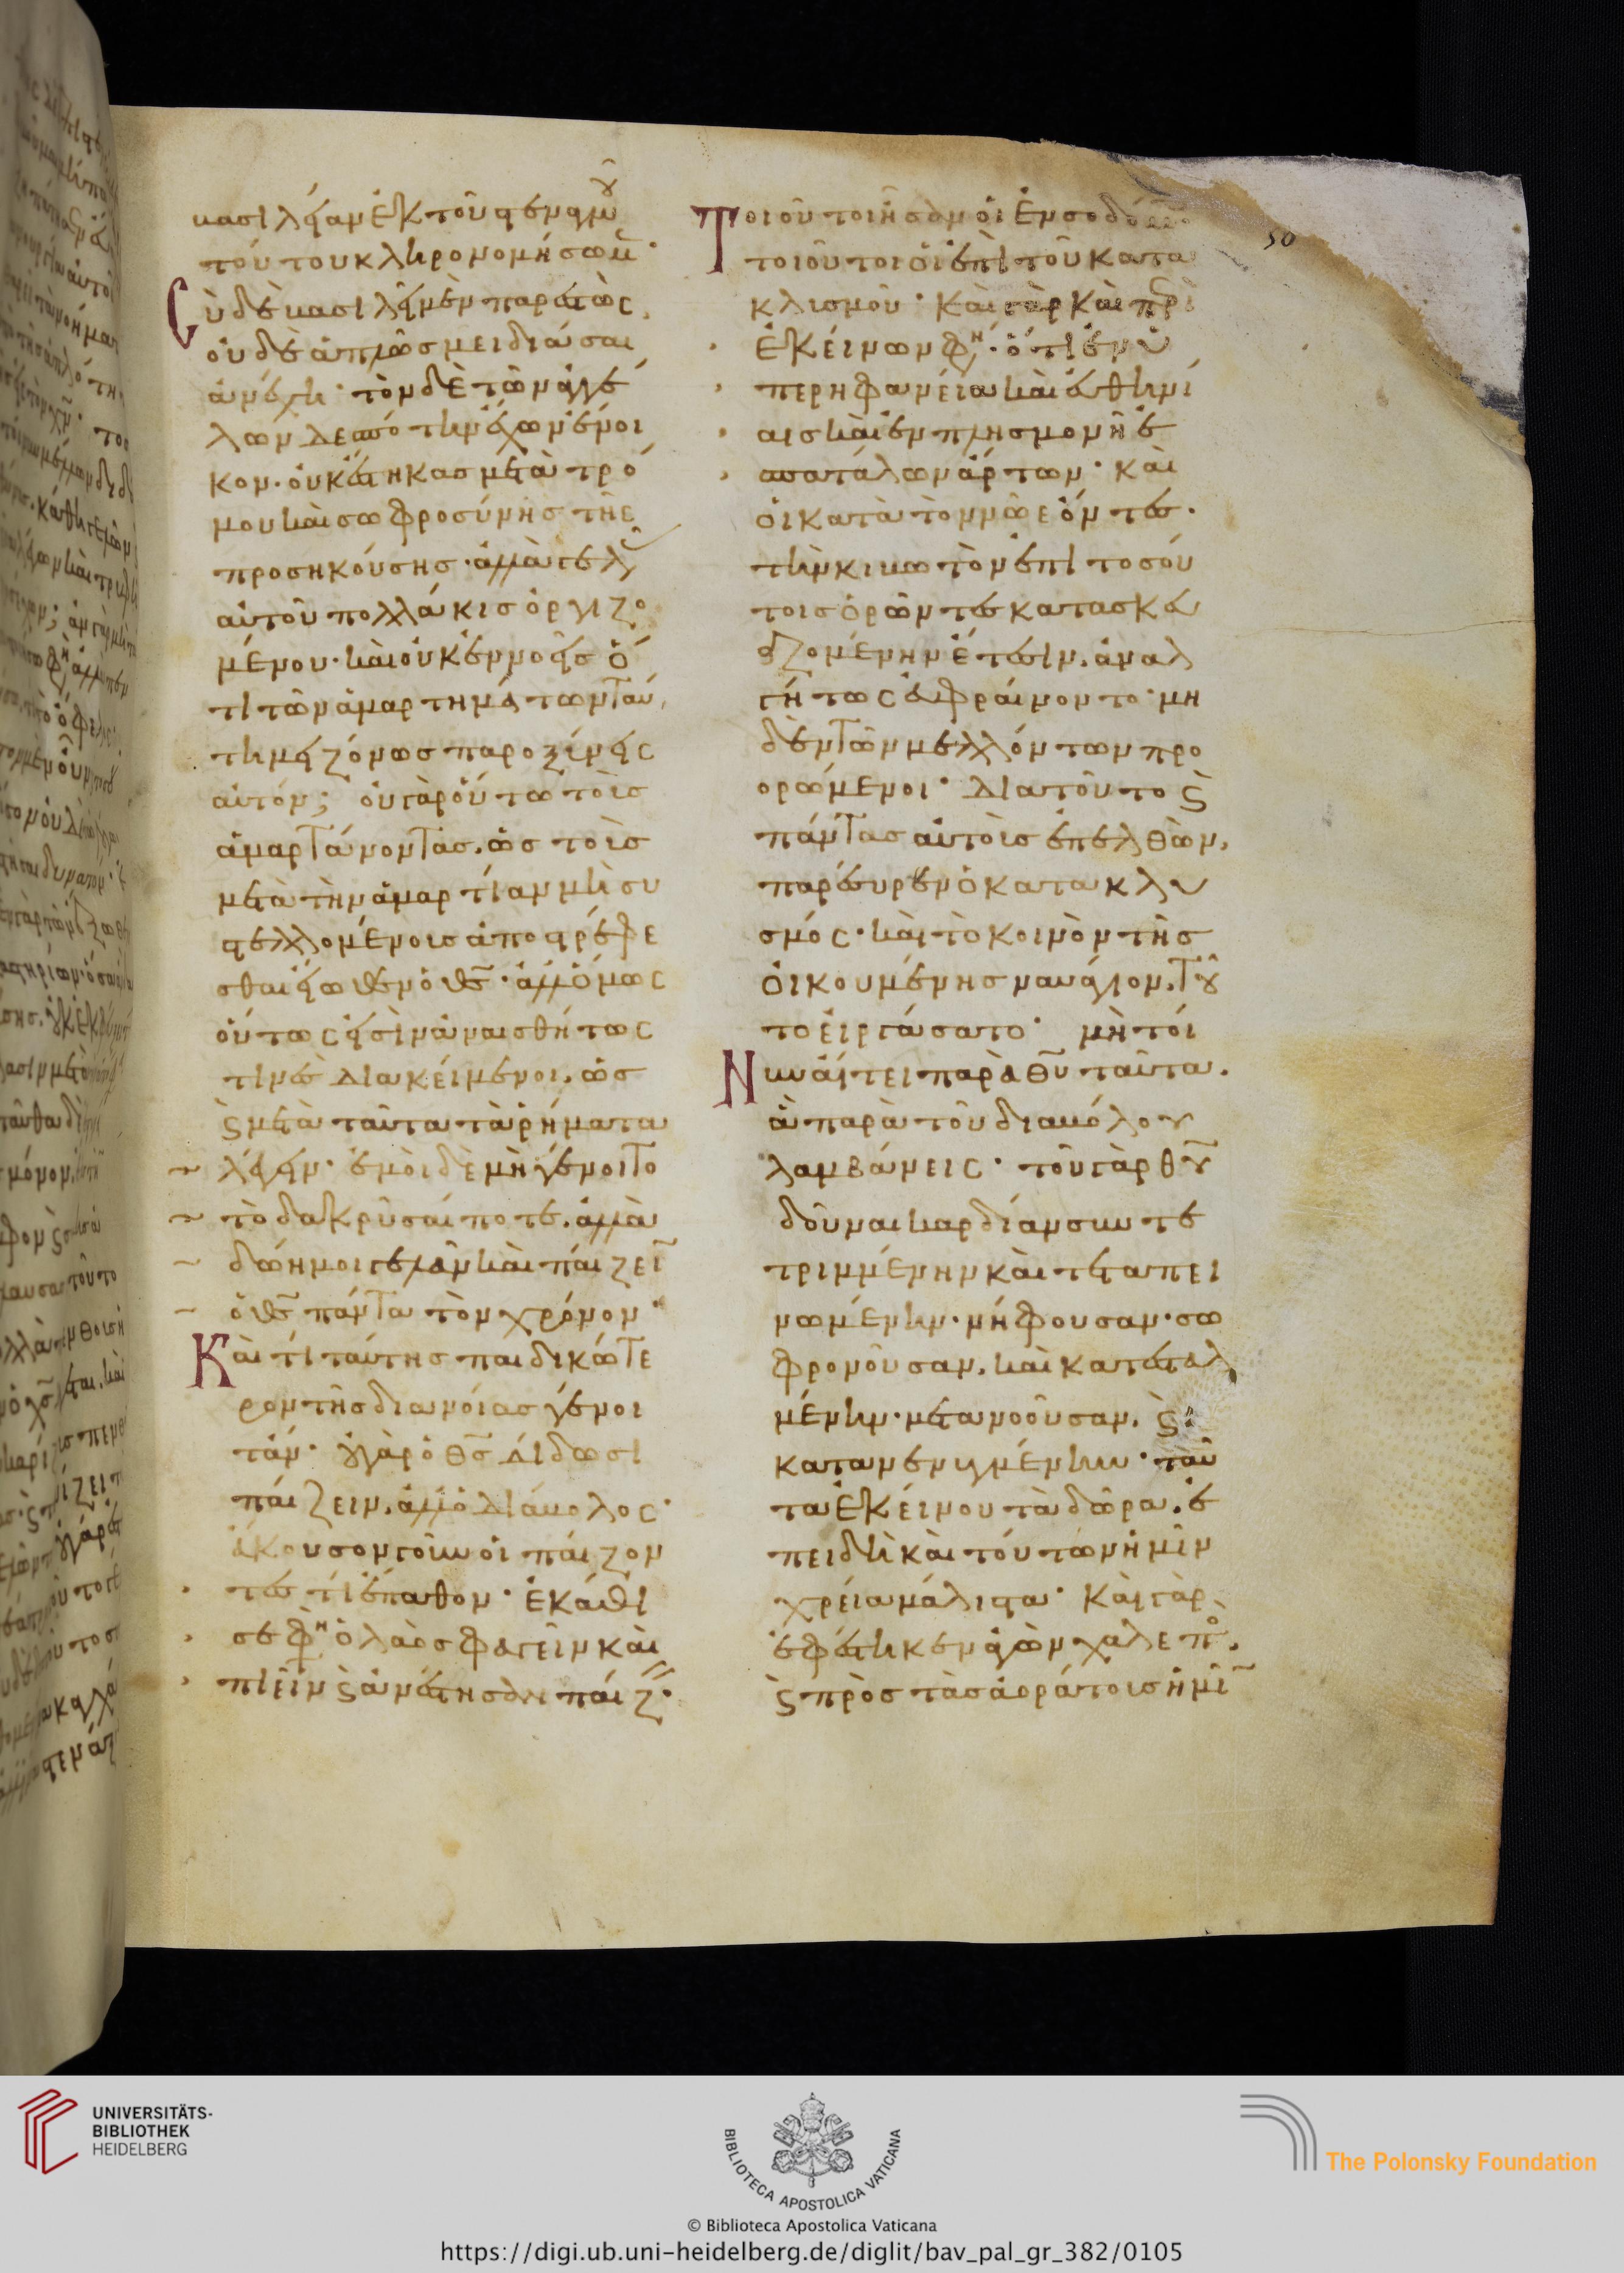 βασιλείαν ἐκ τοῦ στεναγμοῦ
τούτου κληρονομήσωμ̅·
Σὺ δὲ βασιλεῖ μὲν παρεστὼς,
οὐδὲ ἁπλῶς μειδιάσαι
ἀνέχη· τὸν δὲ τῶν ἀγγέ
λων δεσπότην ἔχων ἔνοι
κον. οὐκ ἕστηκας μετὰ τρό
μου καὶ σωφροσύνης τῆς
προσηκούσης. ἀλλὰ γελᾷς
αὐτοῦ πολλάκις ὀργιζο
μένου. καὶ οὐκ ἐννοεῖς ὅ
τι τῶν ἁμαρτημάτων ταύ
τη μειζόνως παροξύνεις
αὐτόν; οὐ γὰρ οὕτω τοὺς
ἁμαρτάνοντας. ὡς τοὺς
μετὰ τὴν ἁμαρτίαν μὴ συ
στελλομένους ἀποστρέφε
σθαι εἴωθεν ὁ θς̅. ἀλλ' ὅμως
οὕτως εἰσὶν ἀναισθήτως
τινὲς διακείμενοι. ὡς
ϛ̀ μετὰ ταῦτα τὰ ῥήματα
λέγειν· ἐμοὶ δὲ μὴ γένοιτο
τὸ δακρῦσαί ποτε. ἀλλὰ
δώη μοι γελᾶν καὶ παίζει̅
ὁ θς̅ πάντα τὸν χρόνον·
Καὶ τί ταύτης παιδικώτε
ρον τῆς διανοίας γένοι
τ' ἄν· οὐ γὰρ ὁ θς̅ δίδωσι
παίζειν. ἀλλ' ὁ διάβολος·
ἄκουσον γοῦν οἱ παίζον
τες τί ἔπαθον· ἐκάθι
σε φη ὁ λαὸς φαγεῖν καὶ
πιεῖν ϛ̀ ἀνέστησαν παίζ·
50
Τοιοῦτοι ἦσαν οἱ ἐν σοδόμοις
τοιοῦτοι οἱ ἐπὶ τοῦ κατα
κλισμοῦ· καὶ γὰρ καὶ περὶ
ἐκείνων φη. ὅτι ἐν ὑ
περηφανεία καὶ εὐθηνί
αις καὶ ἐν πλησμονῆ ἐ
σπατάλων ἄρτων· καὶ
οἱ κατὰ τὸν νῶε ὄντες.
τὴν κιβωτὸν ἐπὶ τοσού
τοις ὁρῶντες κατασκευ
αζομένην ἔτεσιν. ἀναλ
γήτως εὐφραίνοντο· μη
δὲν τῶν μελλόντων προ
ορώμενοι· διὰ τοῦτο ϛ̀
πάντας αὐτοὺς ἐπελθὼν.
παρέσυρεν ὁ κατακλυ
σμός. καὶ τὸ κοινὸν τῆς
οἰκουμένης ναυάγιον. τοῦ
το εἰργάσατο· μὴ τοί
Νυν αἴτει παρὰ θυ̅ ταῦτα.
ἃ παρὰ τοῦ διαβόλου
λαμβάνεις· τοῦ γὰρ θυ̅
δοῦναι καρδίαν συντε
τριμμένην καὶ τεταπει
νωμένην. νήφουσαν. σω
φρονοῦσαν. καὶ κατεσταλ
μένην. μετανοοῦσαν. ϛ̀
κατανενυγμένην· ταῦ
τα ἐκείνου τὰ δῶρα. ἐ
πειδὴ καὶ τούτων ἡμῖν
χρεία μάλιστα· καὶ γὰρ
ἐφέστηκεν ἀγὼν χαλεπὸς.
ϛ̀ πρὸς τὰς ἀοράτους ἡμῖ̅
UNIVERSITÄTS-
BIBLIOTHEK
HEIDELBERG
BIBLIOTECA APOSTOLICA VATICANA
The Polonsky Foundation
© Biblioteca Apostolica Vaticana
https://digi.ub.uni-heidelberg.de/diglit/bav_pal_gr_382/0105